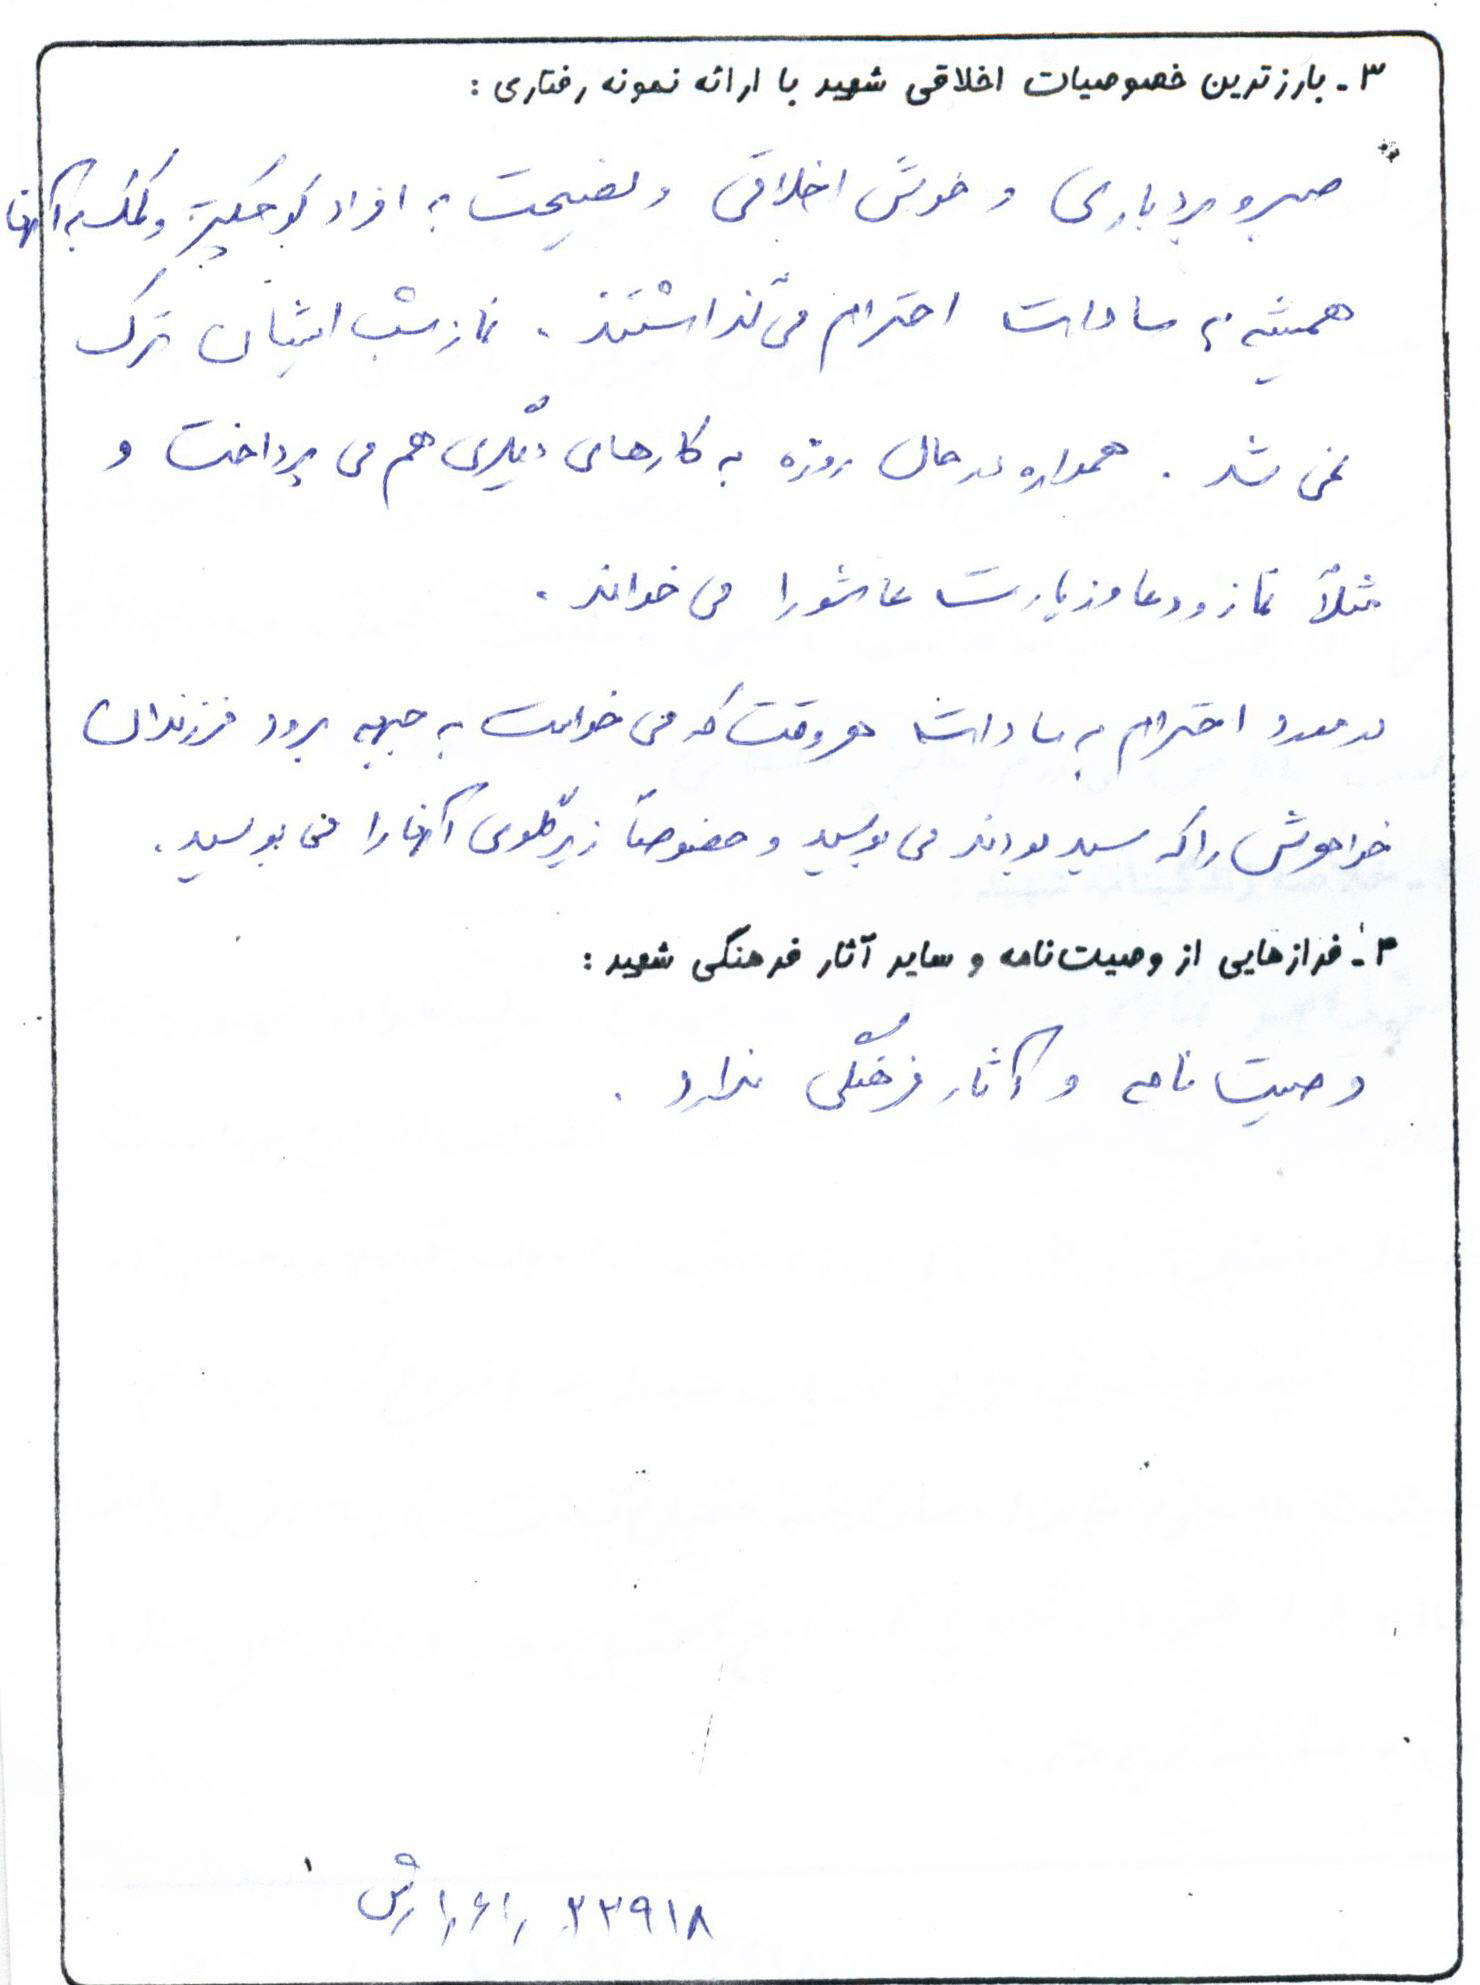 ۳ـ بارزترین خصوصیات اخلاقی شهید با ارائه نمونه رفتاری :
صبر و بردباری و خوش اخلاقی و نصیحت به افراد کوچکتر و کمک به آنها
همیشه به سادات احترام می گذاشتند . نماز شب ایشان ترک
نمی شد . همواره در حال روزه به کارهای دیگری هم می پرداخت و
مثلاً نماز و دعا و زیارت عاشورا می خواند .
در مورد احترام به سادات هر وقت که می خواست به جبهه برود فرزندان
خواهرش را که سید بودند می بوسید و خصوصاً زیر گلوی آنها را می بوسید .
۴ـ فرازهایی از وصیت‌نامه و سایر آثار فرهنگی شهید :
وصیت نامه و آثار فرهنگی ندارد .
۲۲۹۱۸